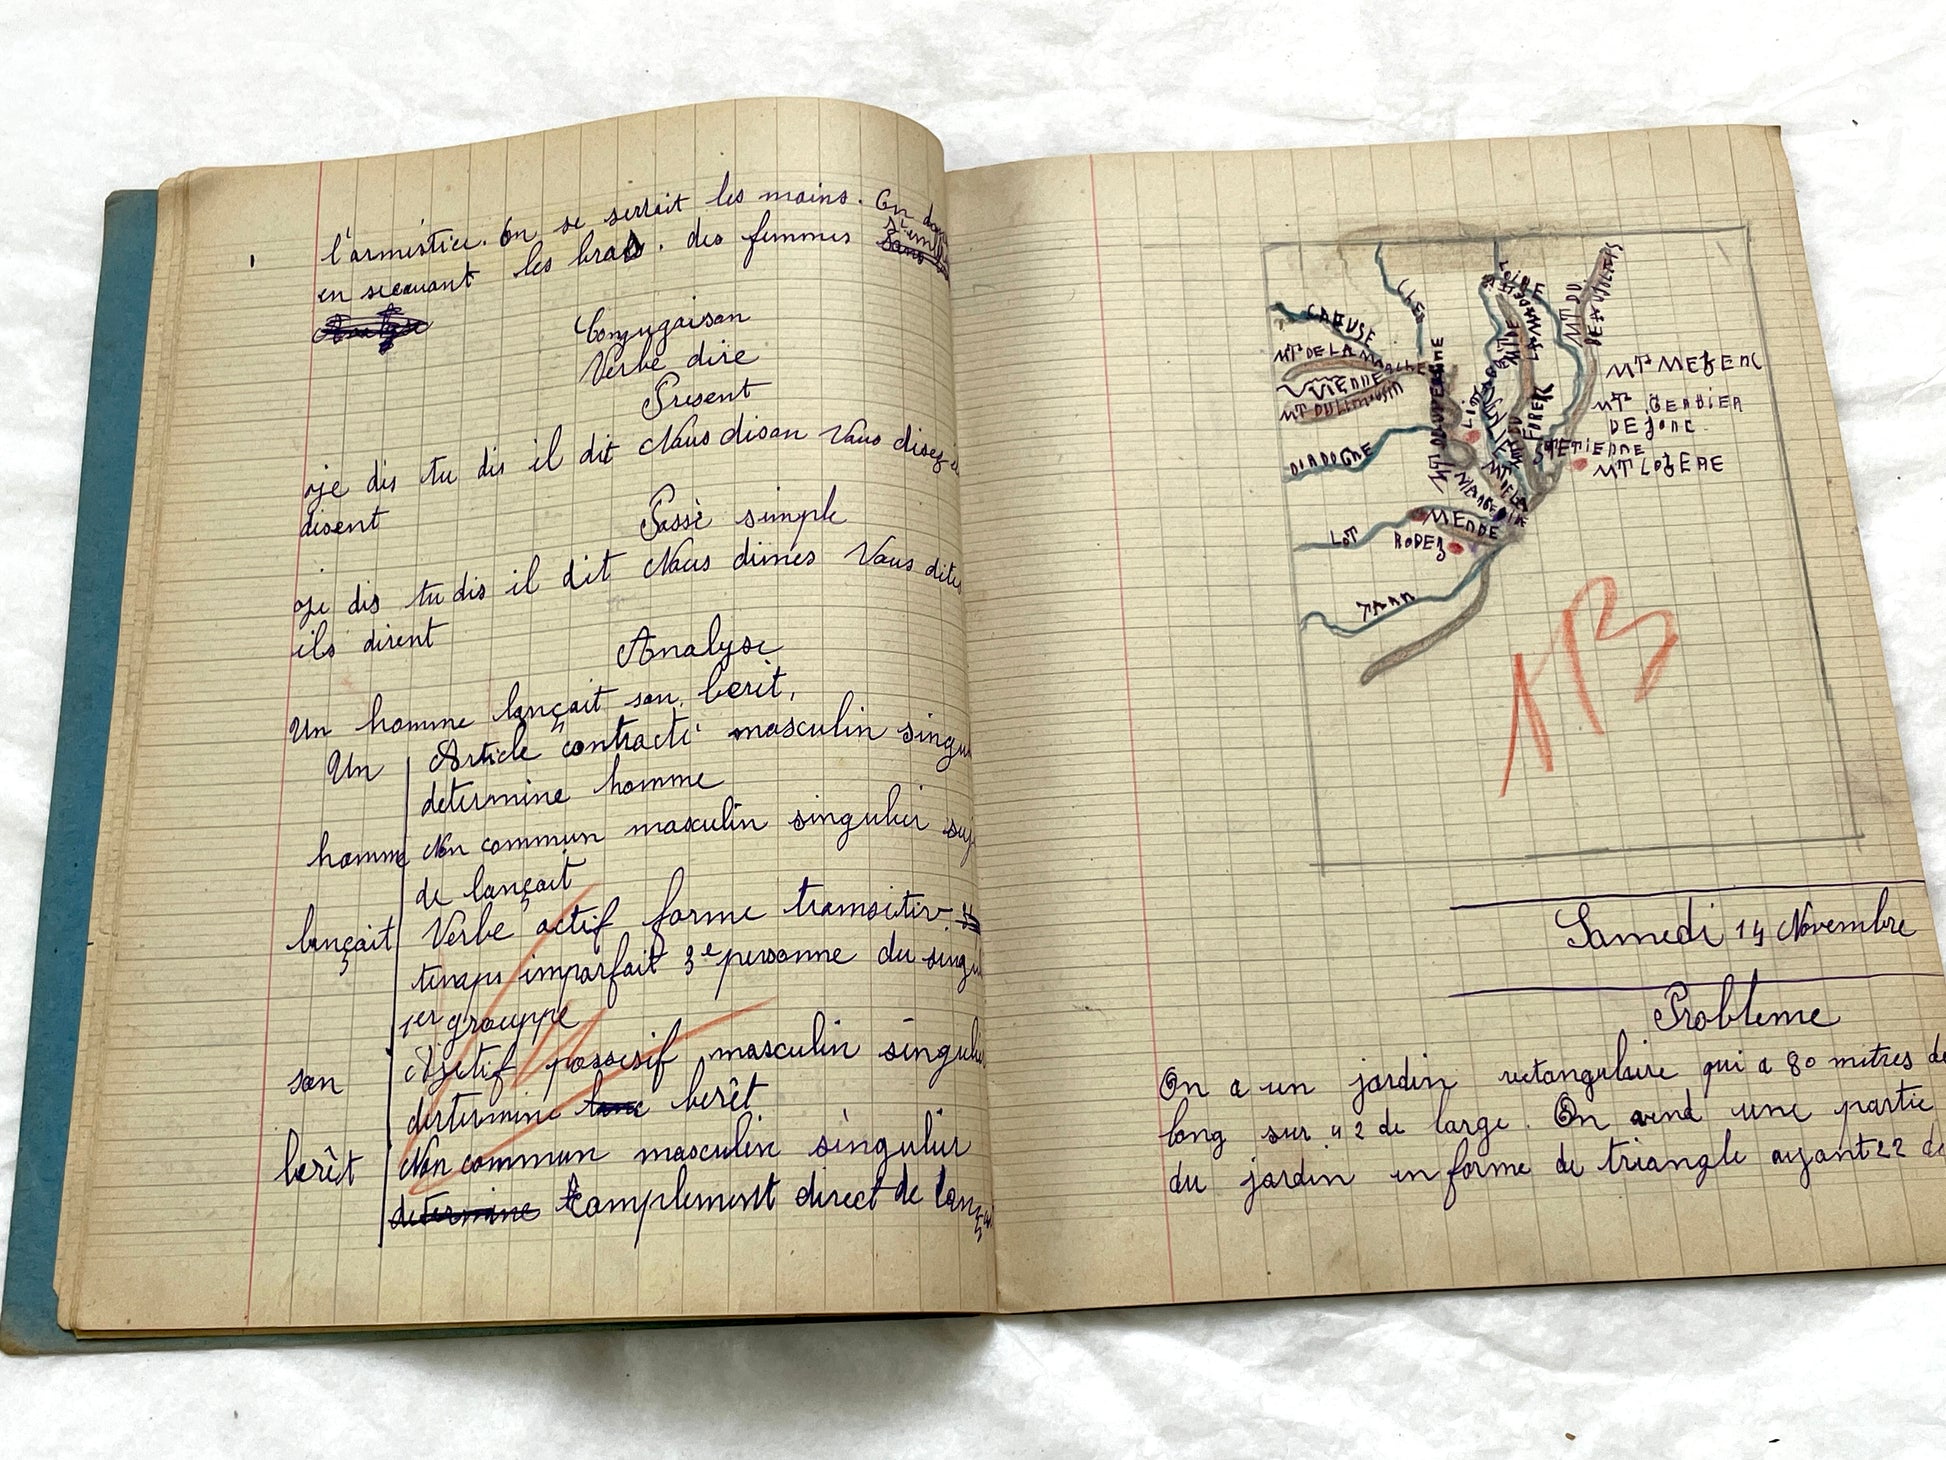 l'armistice. On se serrait les mains. On
en secouant les bras. des femmes
Conjugaison
Verbe dire
Présent
Je dis tu dis il dit Nous disan Vous disez
disent
Passé simple
Je dis tu dis il dit Nous dimes Vous dites
ils dirent
Analyse
Un homme lançait son berêt.
Un Article contracté masculin singu
determine homme
homme Non commun masculin singulier suj
de lançait
lançait Verbe actif forme transitiv
temps imparfait 3e personne du singu
1er grouppe
son Adjetif possesif masculin singulie
dertermine berêt
berêt Non commun masculin singulier
determine Complement direct de lançai
CREUSE
CHER
LOIRE
MT DE LA MARCHE
VIENNE
MT DU LIMOUSIN
MT D'AUVERGNE
MT DU FOREZ
MT DU BEAUJOLAIS
MT MEZENC
MT GERBIER
DE JONC
ST ETIENNE
MT LOZERE
DORDOGNE
MT DE LA
MARGERIDE
MENDE
LOT
RODEZ
TARN
TB
Samedi 14 Novembre
Probleme
On a un jardin rectangulaire qui a 80 mètres de
long sur 42 de large. On vend une partie
du jardin en forme de triangle ayant 22 de